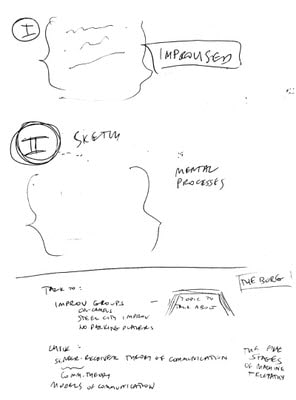 I
IMPROVISED
II
SKETCH
MENTAL
PROCESSES
THE BORG
TALK TO:
IMPROV GROUPS
ON-CAMPUS
STEEL CITY IMPROV
NO PARKING PLAYERS
TOPIC TO
TALK ABOUT
SENDER-RECEIVER THEORY OF COMMUNICATION
COMM. THEORY
MODELS OF COMMUNICATION
THE FIVE
STAGES
OF MACHINE
TELEPATHY